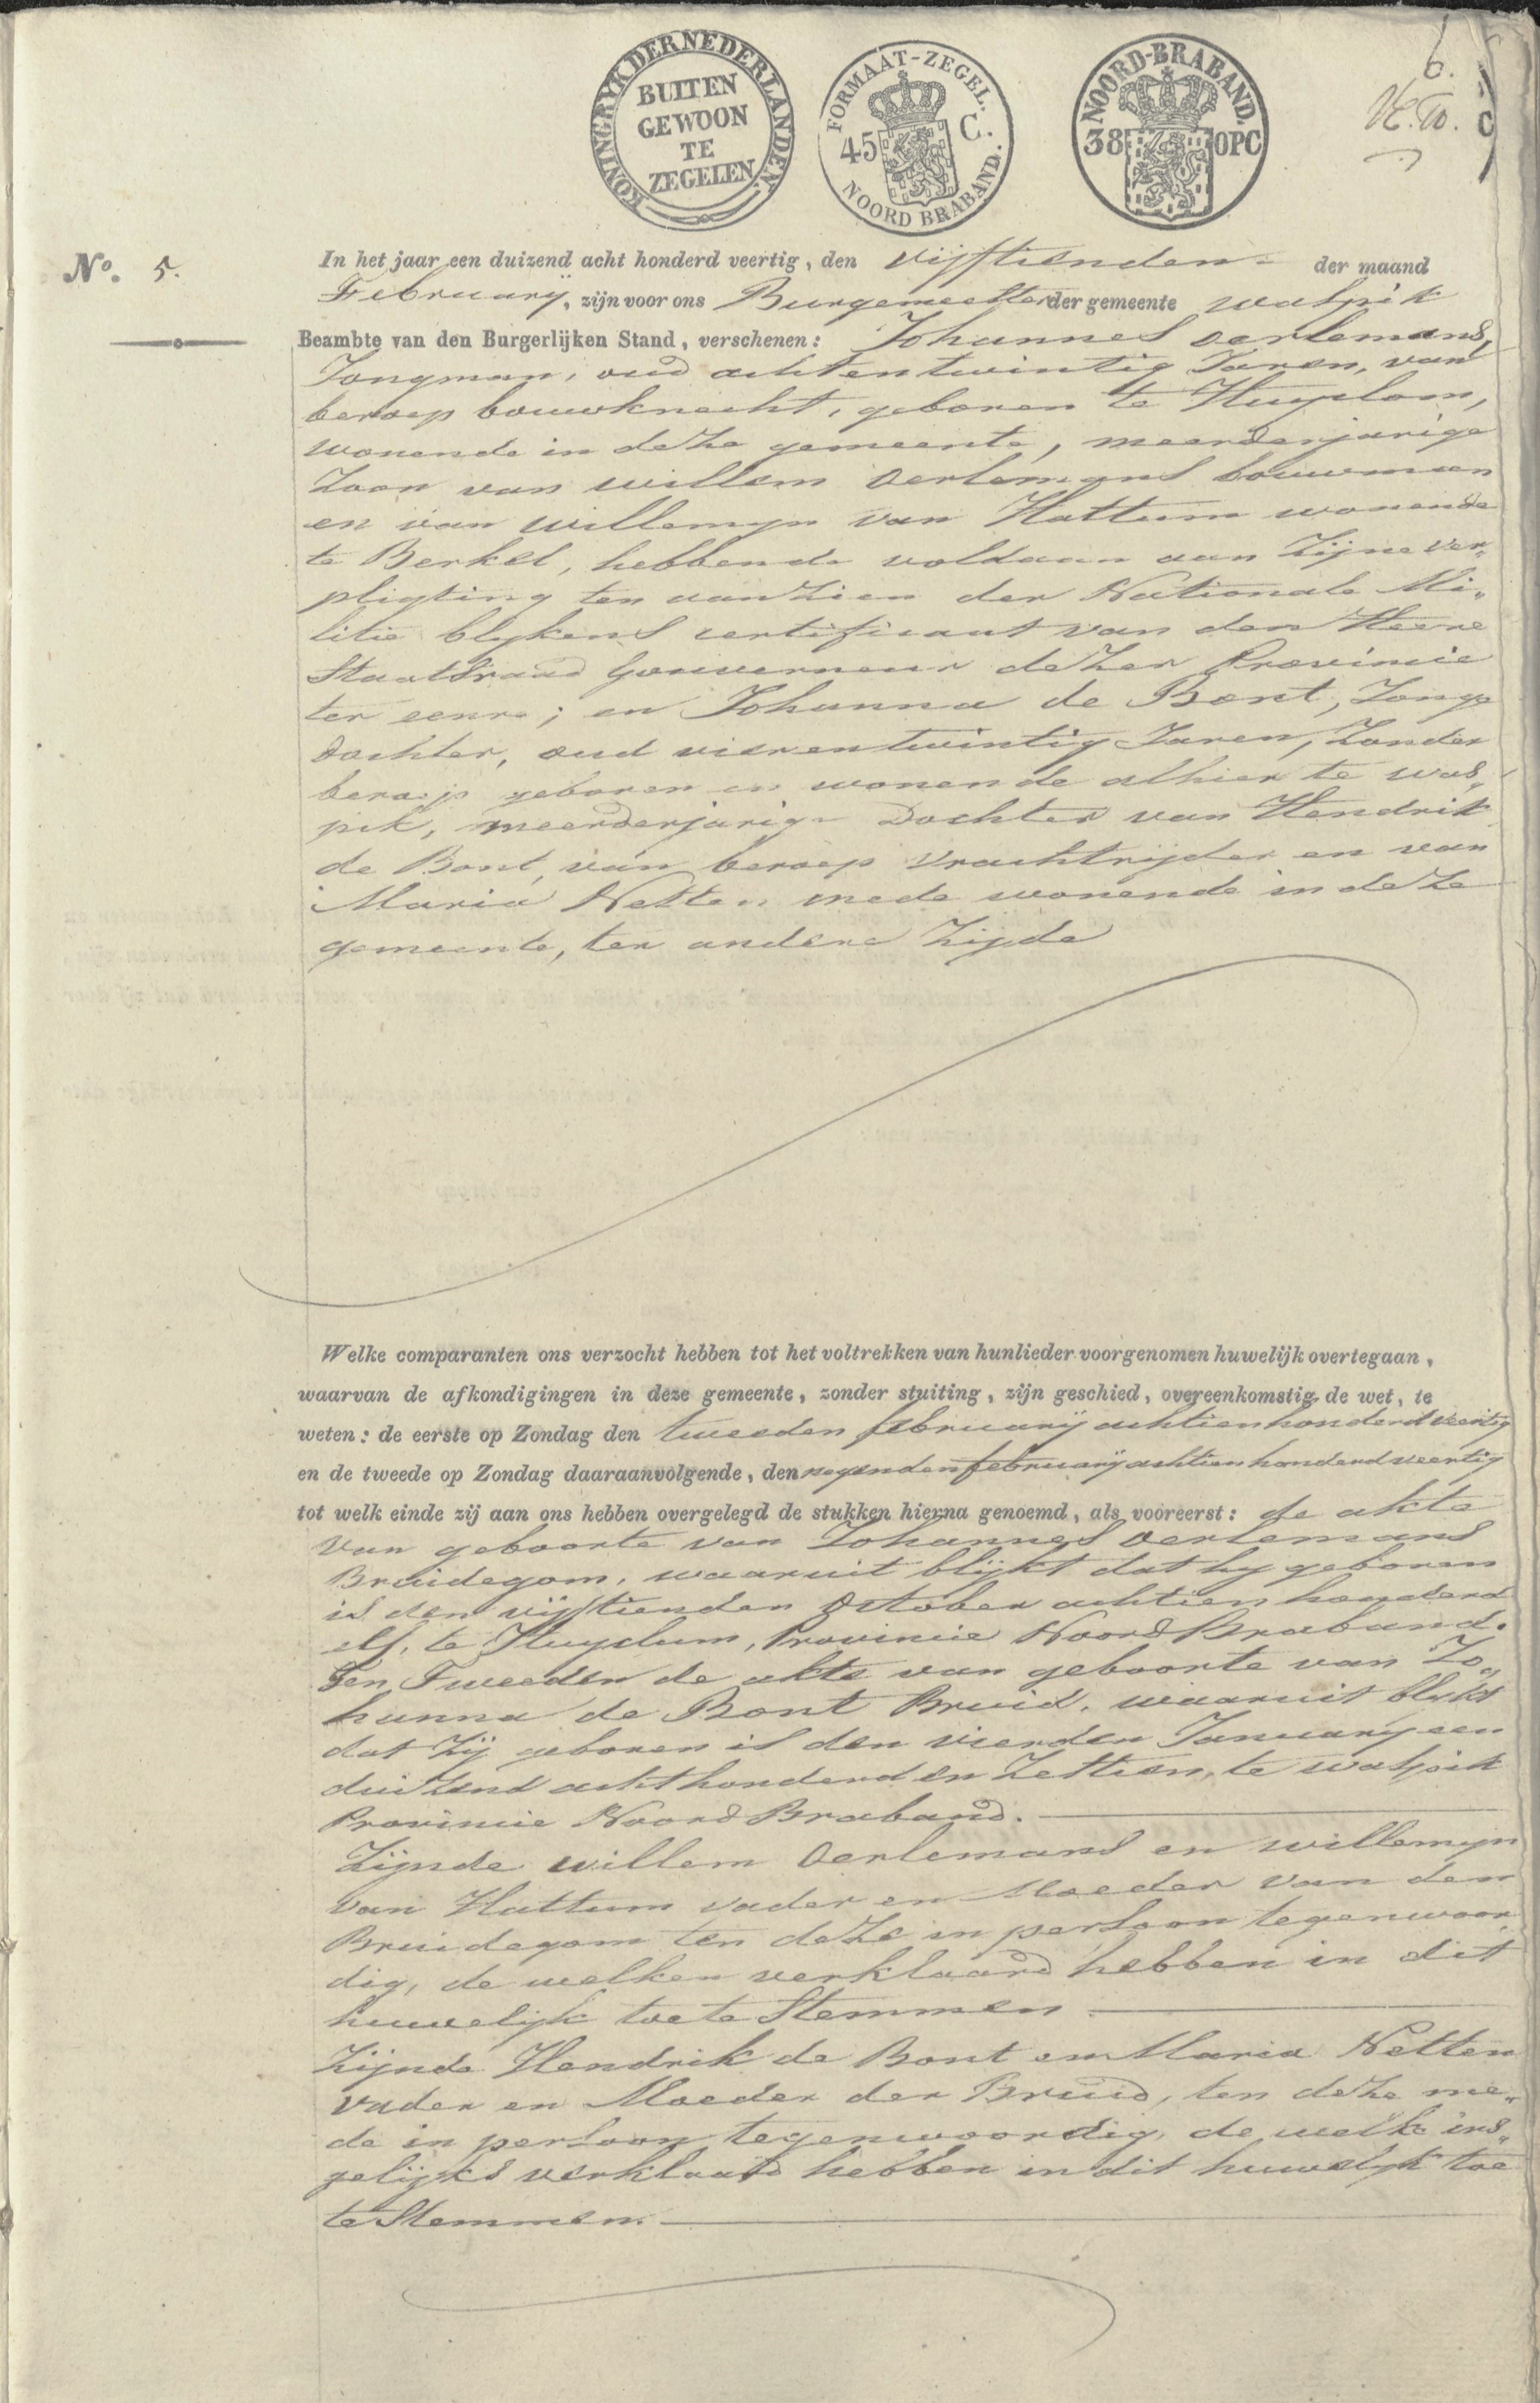 KONINGRYK DER NEDERLANDEN.
BUITEN
GEWOON
TE
ZEGELEN
FORMAAT-ZEGEL.
45 C.
NOORD BRABAND.
NOORD-BRABAND.
38 OPC
6.
No. 5.
In het jaar een duizend acht honderd veertig, den vijftienden der maand
February, zijn voor ons Burgemeester der gemeente Waspik
Beambte van den Burgerlijken Stand, verschenen: Johannes Oerlemans,
Jongman, oud achtentwintig Jaren, van
beroep bouwknecht, geboren te
wonende in deze gemeente, meerderjarige
Zoon van Willem Oerlemans bouwman
en van Willemyn van Hattum wonende
te Berkel, hebbende voldaan aan Zijne ver„
pligting ten aanzien der Nationale Mi„
litie blykens certificaat van den Heere
Staatsraad Gouverneur dezer Provincie
ter eenre; en Johanna de Bont, Jonge
dochter, oud vierentwintig Jaren, Zonder
beroep geboren en wonende alhier te Was„
pik, meerderjarige Dochter van Hendrik
de Bont, van beroep Vrachtrijder en van
Maria Netten mede wonende in deze
gemeente, ter andere Zijde
Welke comparanten ons verzocht hebben tot het voltrekken van hunlieder voorgenomen huwelijk overtegaan,
waarvan de afkondigingen in deze gemeente, zonder stuiting, zijn geschied, overeenkomstig de wet, te
weten: de eerste op Zondag den tweeden february achtienhonderd veertig
en de tweede op Zondag daaraanvolgende, den negenden february achtien honderd veertig
tot welk einde zij aan ons hebben overgelegd de stukken hierna genoemd, als vooreerst: de akte
van geboorte van Johannes Oerlemans
Bruidegom, waaruit blijkt dat hy geboren
is den vijftienden October achtien honderd
elf, te Provincie Noord Braband.
Ten Tweeden de akte van geboorte van Jo„
hanna de Bont Bruid, waaruit blykt
dat Zij geboren is den vierden January een
duizend achthonderd en Zestien, te Waspik
Provincie Noord Braband.
Zijnde Willem Oerlemans en Willemyn
van Hattum vader en Moeder van den
Bruidegom ten deze in persoon tegenwoor„
dig, de welken verklaard hebben in dit
huwelijk toe te Stemmen
Zijnde Hendrik de Bont en Maria Netten
Vader en Moeder der Bruid, ten deze me„
de in persoon tegenwoordig, de welke ins„
gelijks verklaard hebben in dit huwelyk toe
te Stemmen.